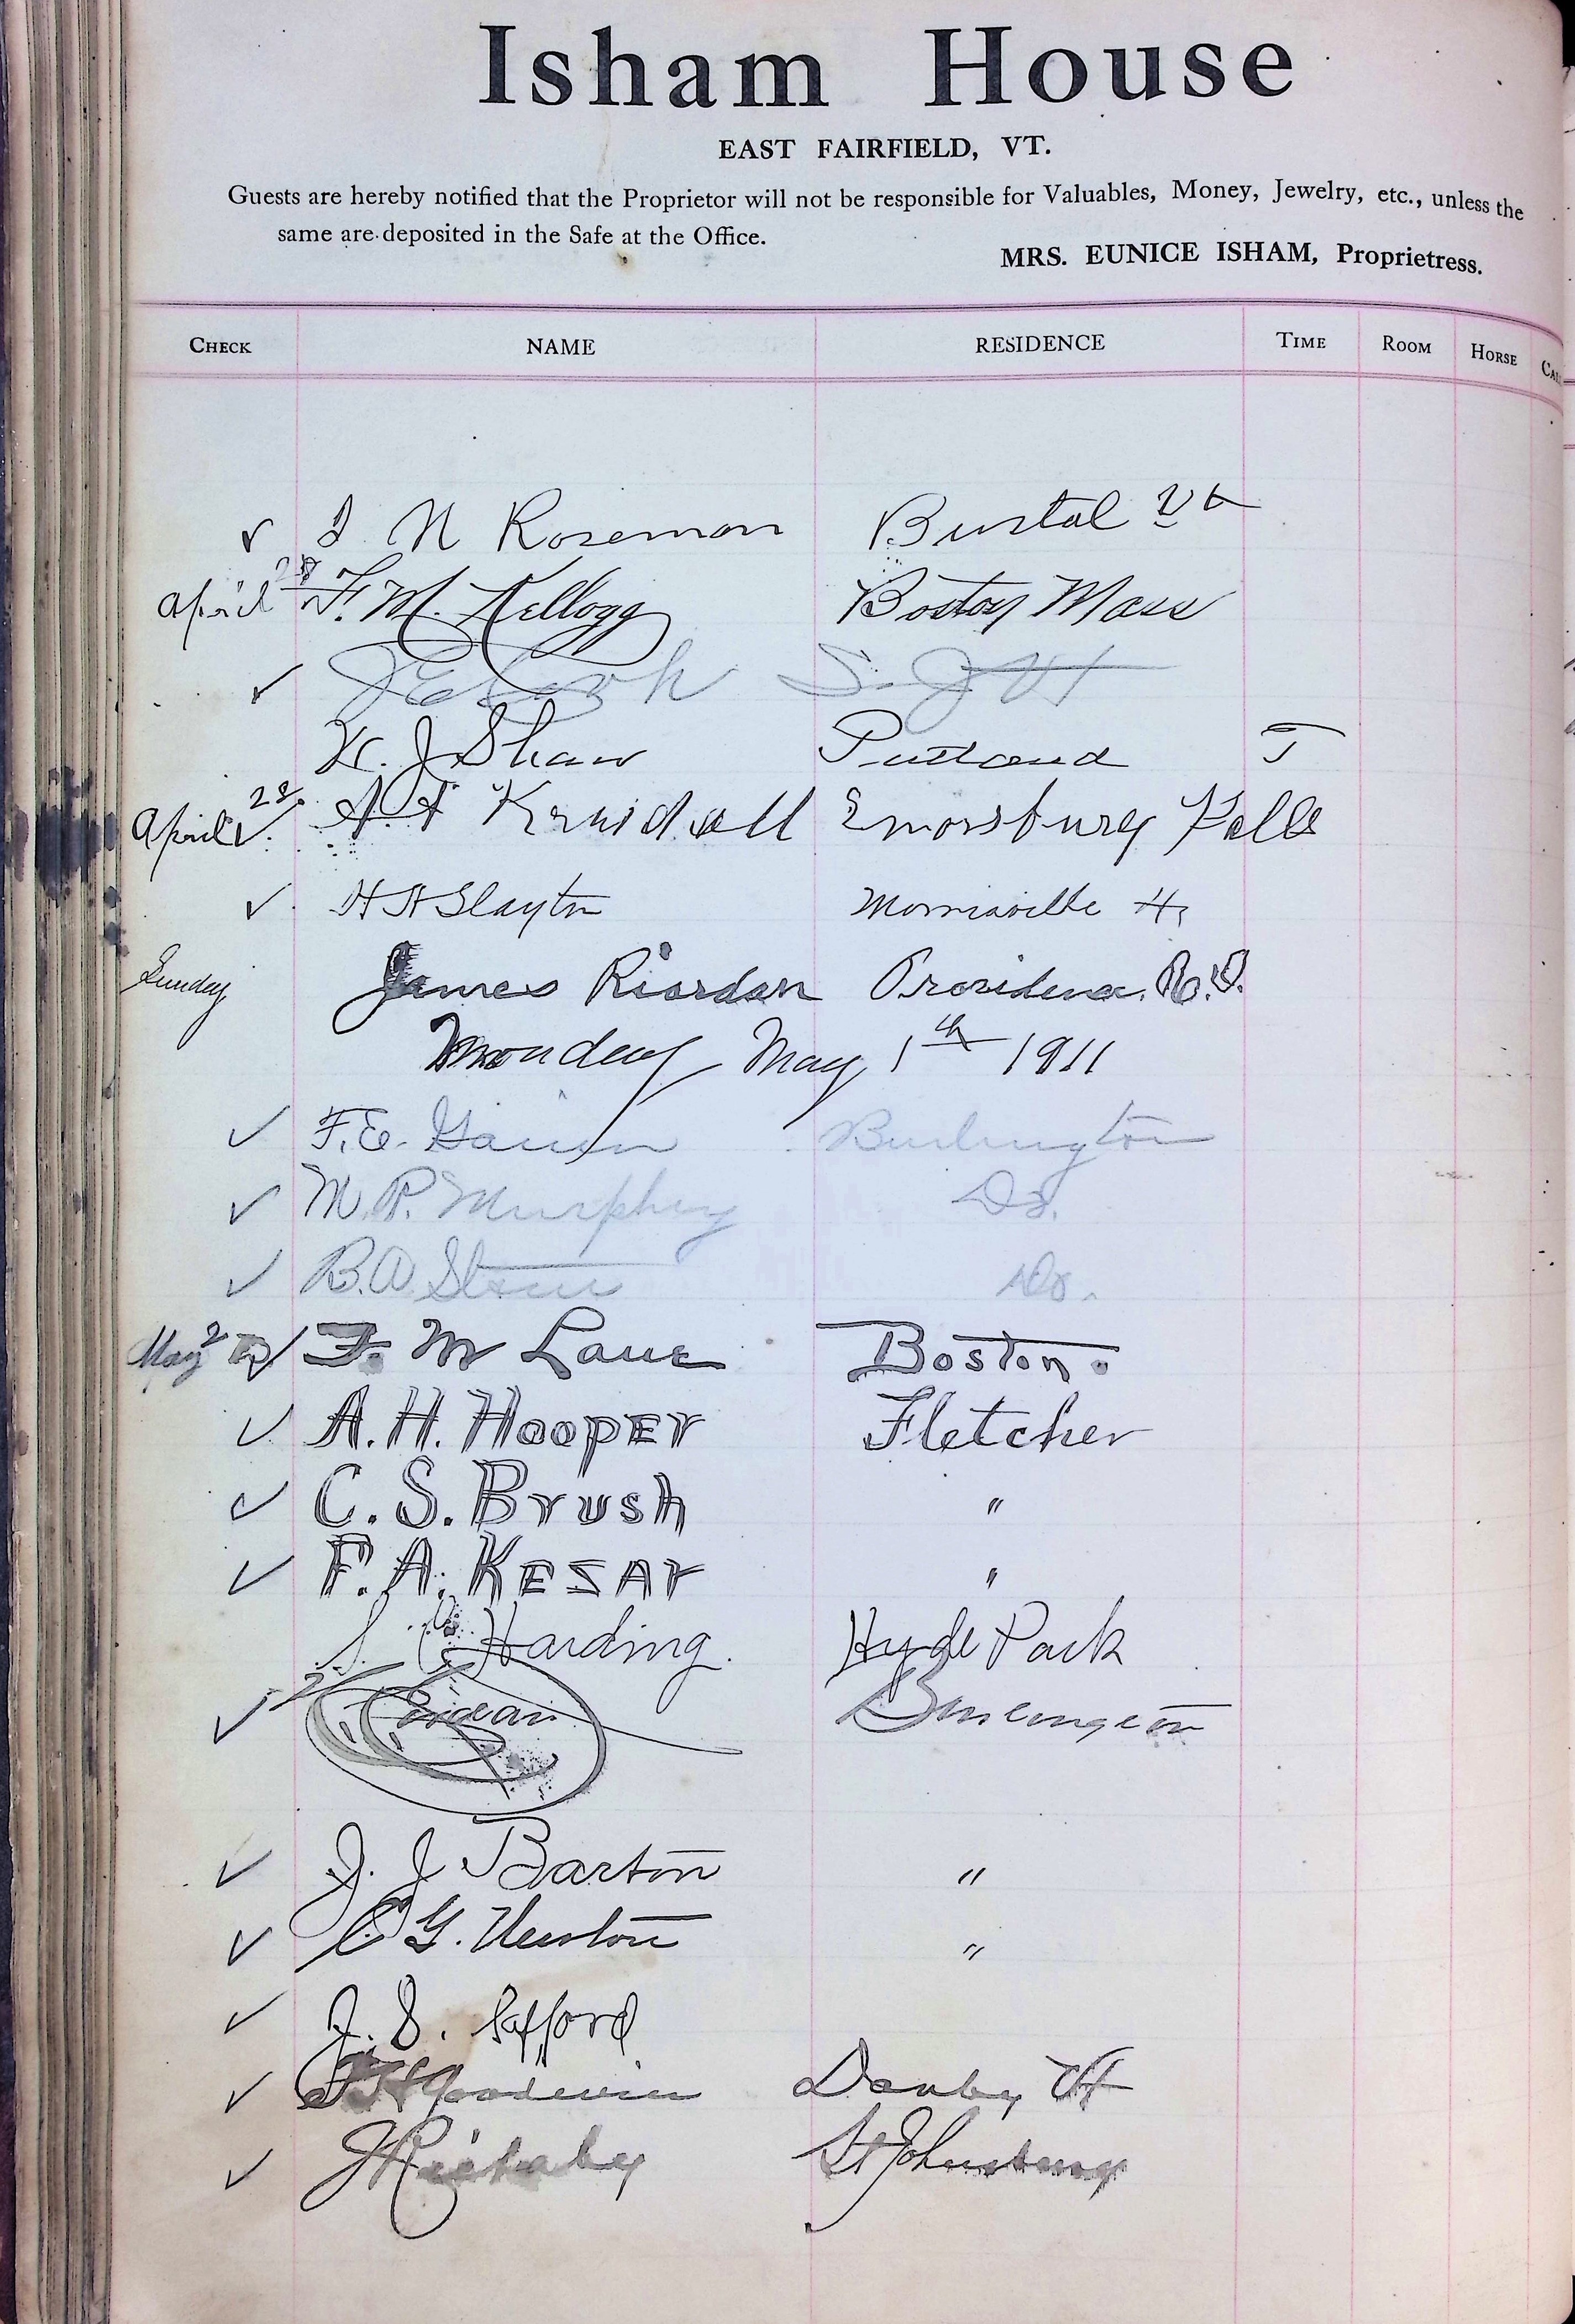 Isham House
EAST FAIRFIELD, VT.
Guests are hereby notified that the Proprietor will not be responsible for Valuables, Money, Jewelry, etc., unless the
same are deposited in the Safe at the Office.
MRS. EUNICE ISHAM, Proprietress.
CHECK NAME RESIDENCE TIME ROOM HORSE
✓ I N Roseman Bristol Vt
April 28 F. M. Kellogg Boston Mass
✓ S. J Vt
W. J Shaw Rutland T
April 28 ✓ A. A Kendall Enosburg Falls
✓ H A Slayton Morrisville
Sunday James Riordan Providence. R.I.
Monday May 1th 1911
✓ F. E. Burlington
✓ M. P. Murphy Do.
✓ B. A. Stone Do.
May 2 ✓ F. M Lane Boston.
✓ A. H. HOOPEr Fletcher
✓ C. S. Brush "
✓ F. A. KESAr "
Harding. Hyde Park
✓ Burlington
✓ J. J Barton "
✓ C G. Newton "
✓ J. S. Safford
✓ Goodwin Danby Vt
✓ J Rickaby St Johnsbury